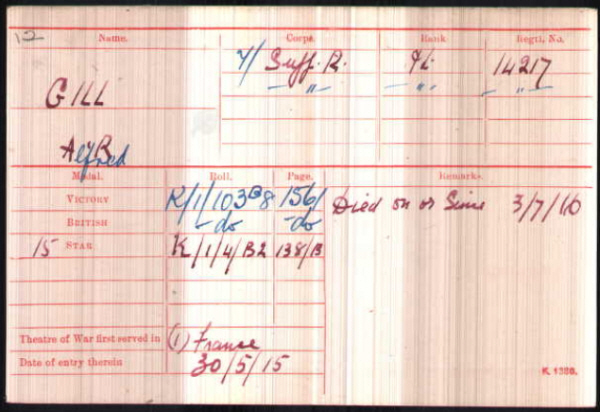 12 Name. Corps. Rank. Regtl. No.
7/ Suff. R. 14217
" " "
GILL
Alfred
Medal. Roll. Page. Remarks.
VICTORY K/1/103B8 1561 Died on or Since 3/7/16
BRITISH -do -do
15 STAR K/1/4/B2 138/B
Theatre of War first served in (1) France
Date of entry therein 30/5/15
K 1380.